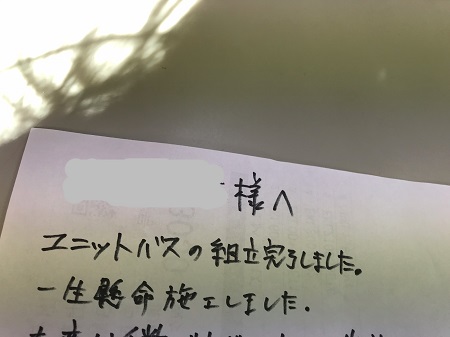 様へ
ユニットバスの組立完了しました。
一生懸命施工しました.